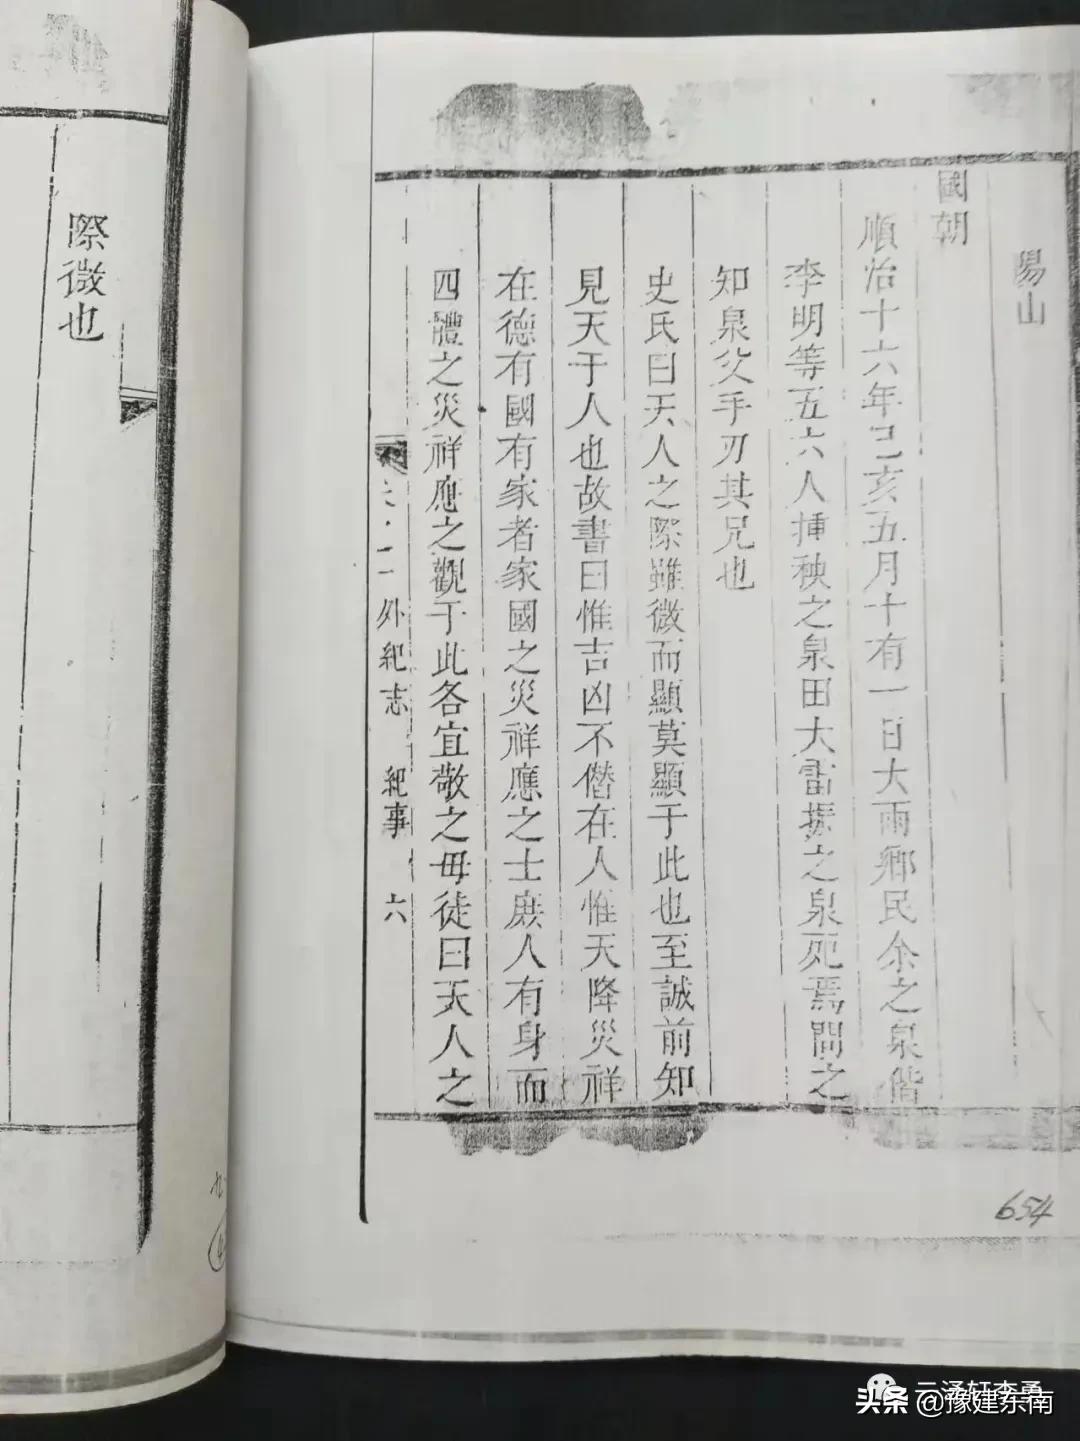 易山
國朝
順治十六年己亥五月十有一日大雨鄉民余之泉偕
李明等五六人揷秧之泉田大雷振之泉死焉問之
知泉父手刃其兄也
史氏曰天人之際雖微而顯莫顯于此也至誠前知
見天于人也故書曰惟吉凶不僭在人惟天降災祥
在德有國有家者家國之災祥應之士庶人有身而
四體之災祥應之觀于此各宜敬之毋徒曰天人之
外紀志 紀事 六
際微也
654
云泽轩李勇
头条 @豫建东南